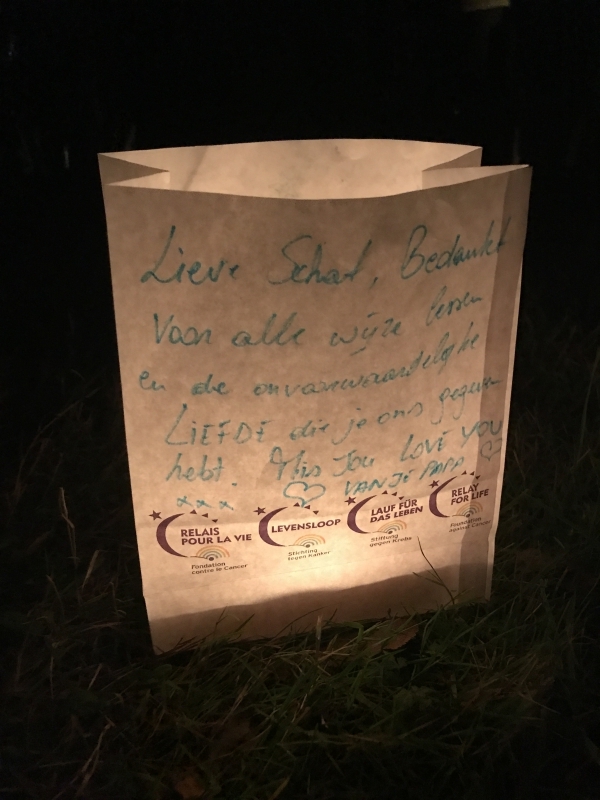 Lieve Schat, Bedankt
Voor alle wijze lessen
en de onvoorwaardelijke
LIEFDE die je ons gegeven
hebt. Mis Jou LOVE YOU
xxx ♡ VAN JE PAPA ♡
RELAIS
POUR LA VIE
Fondation
contre le Cancer
LEVENSLOOP
Stichting
tegen Kanker
LAUF FÜR
DAS LEBEN
Stiftung
gegen Krebs
RELAY
FOR LIFE
Foundation
against Cancer